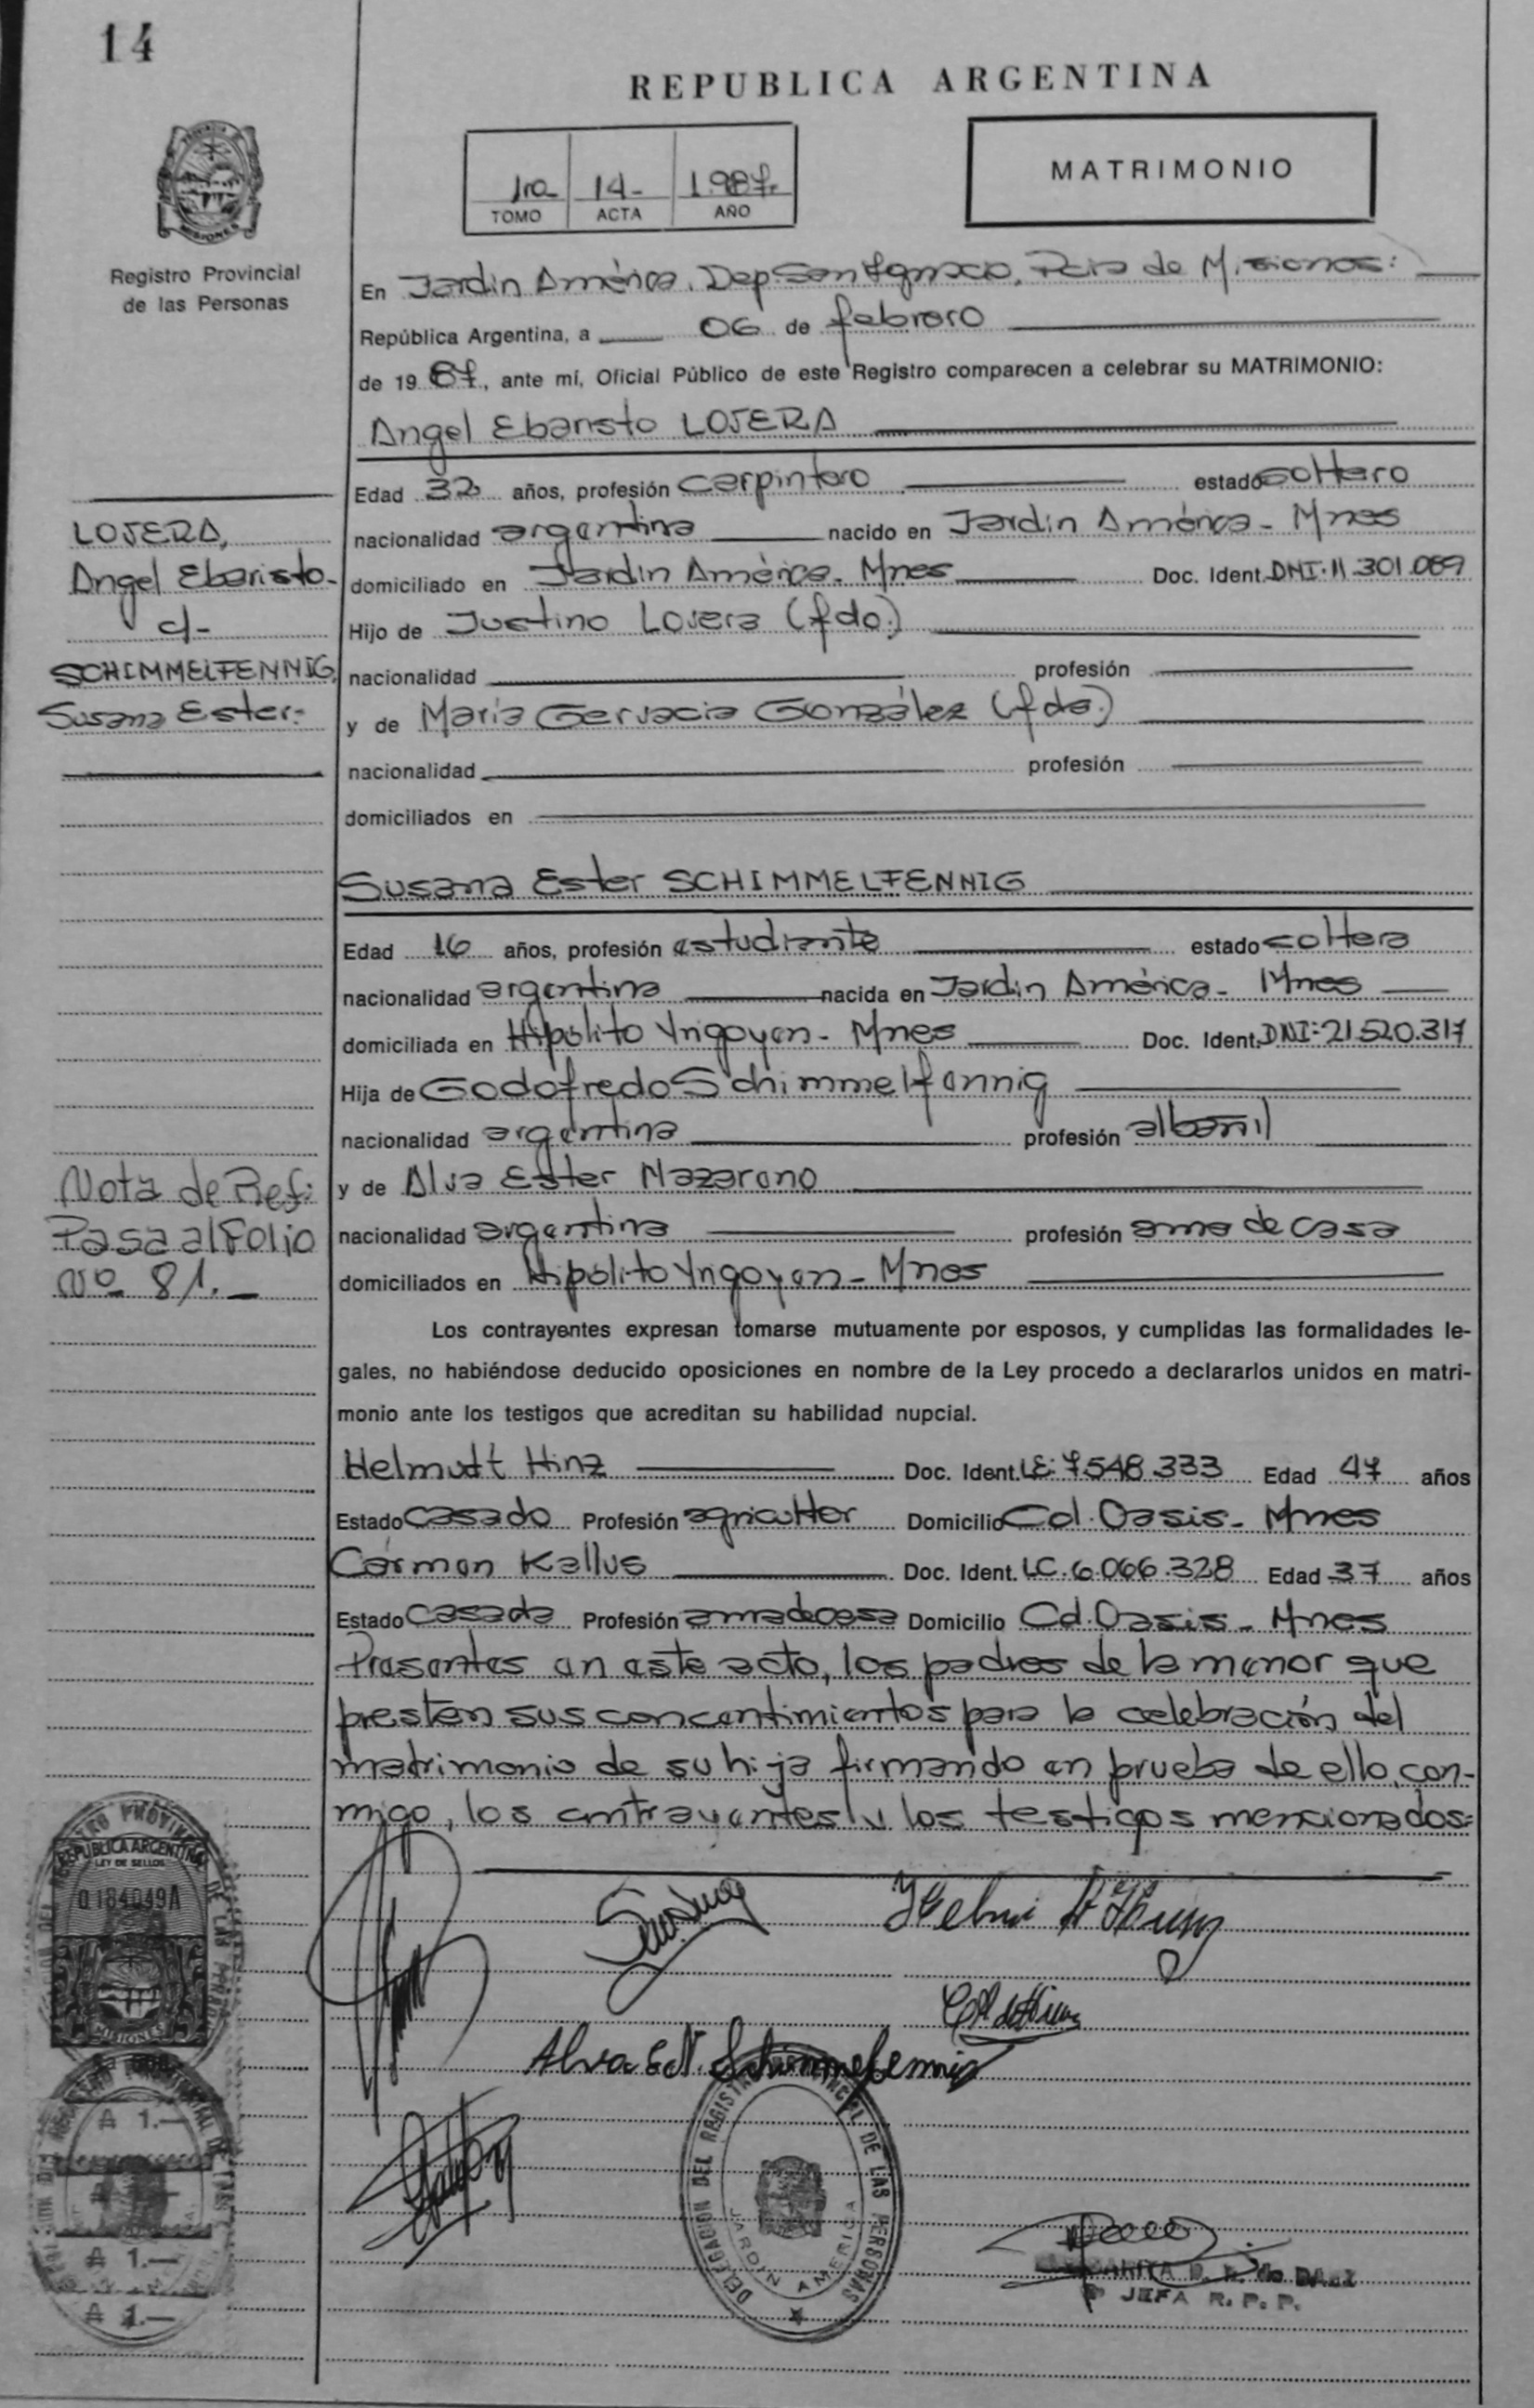 14
REPUBLICA ARGENTINA
1ra 14- 1.987.
TOMO ACTA AÑO
MATRIMONIO
MISIONES
Registro Provincial
de las Personas
En Jardín América, Dep. San Ignacio, Pcia de Misiones:
República Argentina, a 06 de febrero
de 19 87, ante mí, Oficial Público de este Registro comparecen a celebrar su MATRIMONIO:
Angel Ebaristo LOJERA
Edad 32 años, profesión carpintero estado soltero
LOJERA,
nacionalidad argentina nacido en Jardín América - Mnes
Angel Ebaristo-
domiciliado en Jardín América - Mnes Doc. Ident. DNI. 11.301.069
c/-
Hijo de Justino Lojera (fdo.)
SCHIMMELFENNIG,
nacionalidad profesión
Susana Ester.-
y de María Gervacia González (fda.)
nacionalidad profesión
domiciliados en
Susana Ester SCHIMMELFENNIG
Edad 16 años, profesión estudiante estado soltera
nacionalidad argentina nacida en Jardín América - Mnes
domiciliada en Hipólito Yrigoyen - Mnes Doc. Ident. DNI: 21.520.317
Hija de Godofredo Schimmelfennig
nacionalidad argentina profesión albañil
Nota de Ref:
y de Alva Ester Nazareno
Pasa al Folio
nacionalidad argentina profesión ama de casa
Nº 81.-
domiciliados en Hipólito Yrigoyen - Mnes
Los contrayentes expresan tomarse mutuamente por esposos, y cumplidas las formalidades le-
gales, no habiéndose deducido oposiciones en nombre de la Ley procedo a declararlos unidos en matri-
monio ante los testigos que acreditan su habilidad nupcial.
Helmutt Hinz Doc. Ident. LE: 7.548.333 Edad 47 años
Estado casado Profesión agricultor Domicilio Col. Oasis - Mnes
Carmen Kallus Doc. Ident. LC. 6.066.328 Edad 37 años
Estado casada Profesión ama de casa Domicilio Cd. Oasis - Mnes
Presentes en este acto, los padres de la menor que
presten sus concentimientos para la celebración del
matrimonio de su hija firmando en prueba de ello, con-
migo, los contrayentes y los testigos mencionados:=
REPUBLICA ARGENTINA
LEY DE SELLOS
0184049A
MISIONES
Alva E N. Schimmelfennig
DELEGACION DEL REGISTRO PROVINCIAL DE LAS PERSONAS
JARDIN AMERICA
A 1.—
A 1.—
A 1.—
JEFA R. P. P.